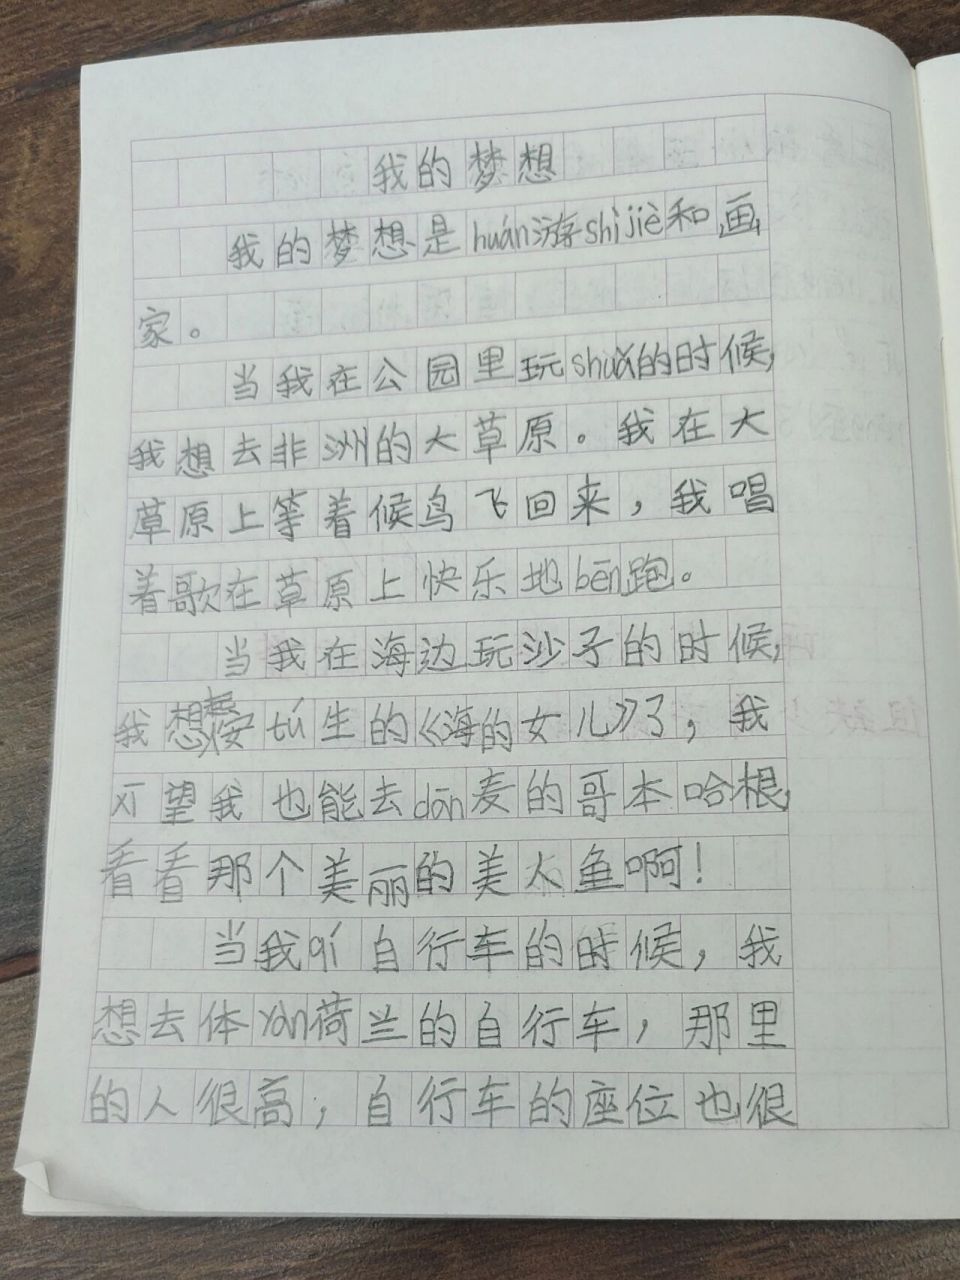 我的梦想
我的梦想是huán游shìjiè和画
家。
当我在公园里玩shuǎ的时候,
我想去非洲的大草原。我在大
草原上等着候鸟飞回来，我唱
着歌在草原上快乐地bēn跑。
当我在海边玩沙子的时候,
我想安tú生的《海的女儿》了，我
xī望我也能去dān麦的哥本哈根,
看看那个美丽的美人鱼啊!
当我qí自行车的时候，我
想去体yàn荷兰的自行车，那里
的人很高，自行车的座位也很